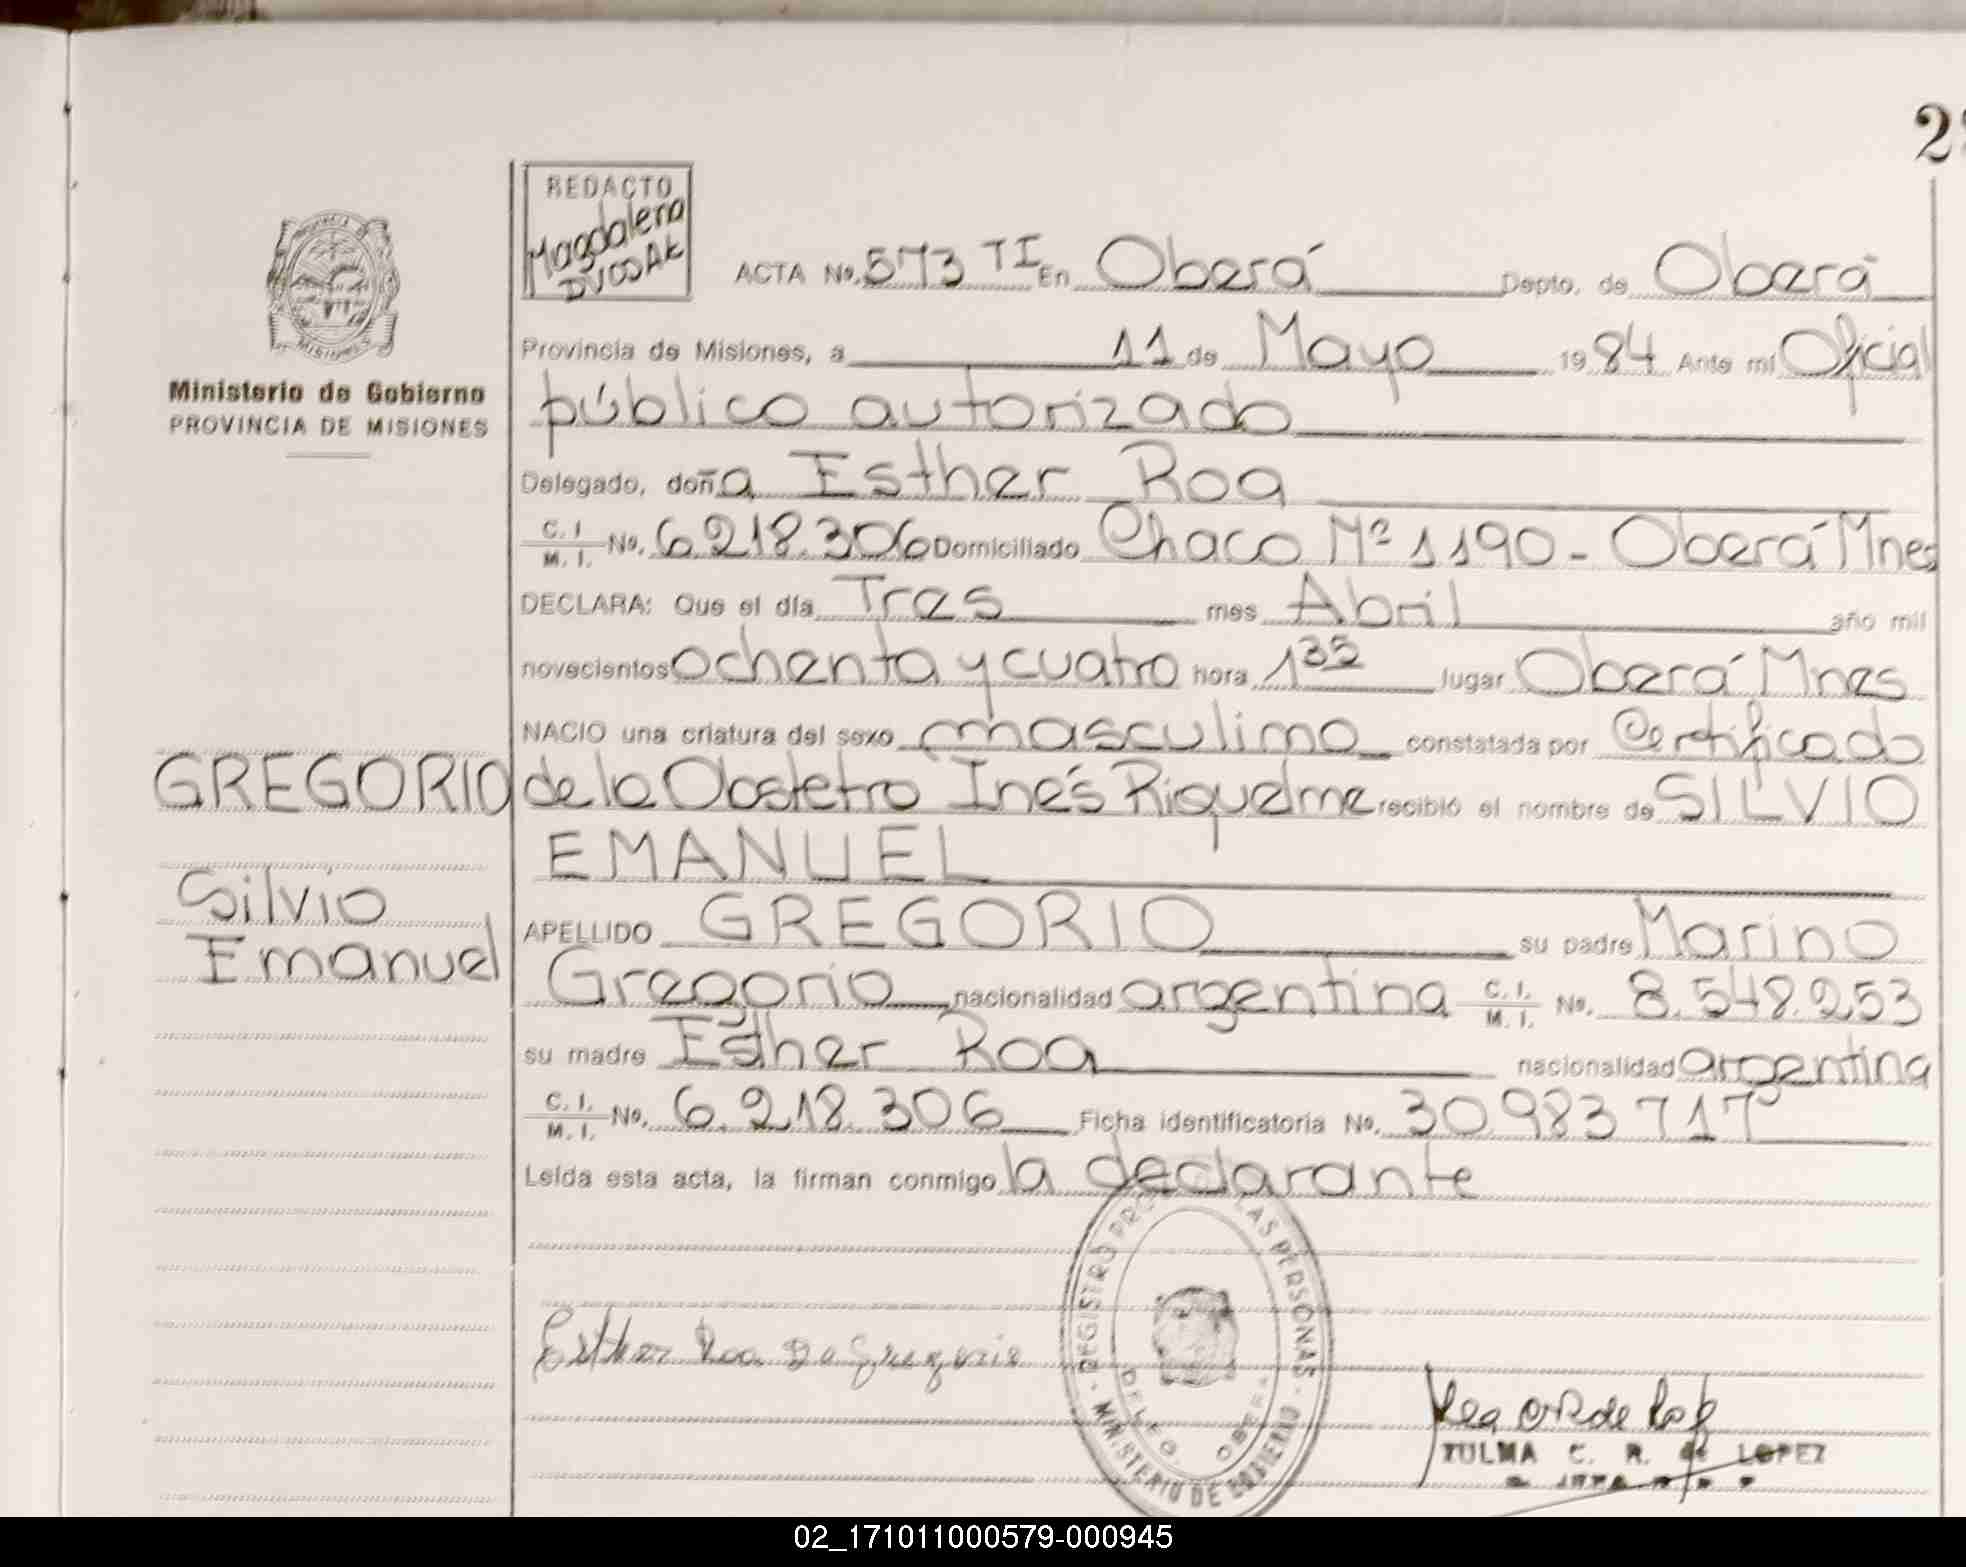 2
REDACTO
Magdalena
DVOSAK
ACTA No. 573 TI En Oberá Depto. de Oberá
MISIONES
Provincia de Misiones, a 11 de Mayo 1984 Ante mi Oficial
Ministerio de Gobierno
PROVINCIA DE MISIONES
público autorizado
Delegado, doña Esther Roa
C. I. M. I. No. 6.218.306 Domiciliado Chaco Nº 1190 - Oberá Mnes
DECLARA: Que el día Tres mes Abril año mil
novecientos ochenta y cuatro hora 1 35 lugar Oberá Mnes
NACIO una criatura del sexo masculino constatada por Certificado
GREGORIO
de la Obstetra Inés Riquelme recibió el nombre de SILVIO
EMANUEL
Silvio
Emanuel
APELLIDO GREGORIO su padre Marino
Gregorio nacionalidad argentina C. I. M. I. No. 8.548.253
su madre Esther Roa nacionalidad argentina
C. I. M. I. No. 6.218.306 Ficha identificatoria No. 30983717
Leída esta acta, la firman conmigo la declarante
REGISTRO LAS PERSONAS
MINISTERIO DE GOBIERNO
OBERA
Esther Roa De Gregorio
ZULMA C. R. de LOPEZ
02_171011000579-000945